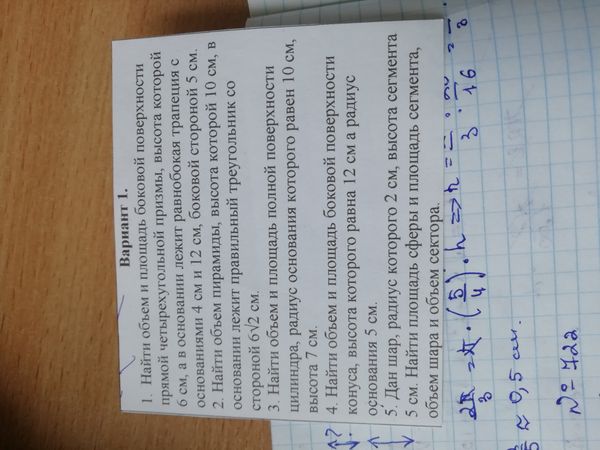 Вариант 1.
1. Найти объем и площадь боковой поверхности
прямой четырехугольной призмы, высота которой
6 см, а в основании лежит равнобокая трапеция с
основаниями 4 см и 12 см, боковой стороной 5 см.
2. Найти объем пирамиды, высота которой 10 см, в
основании лежит правильный треугольник со
стороной 6√2 см.
3. Найти объем и площадь полной поверхности
цилиндра, радиус основания которого равен 10 см,
высота 7 см.
4. Найти объем и площадь боковой поверхности
конуса, высота которого равна 12 см а радиус
основания 5 см.
5. Дан шар, радиус которого 2 см, высота сегмента
5 см. Найти площадь сферы и площадь сегмента,
объем шара и объем сектора.
≈ 0,5 см.
№ 722